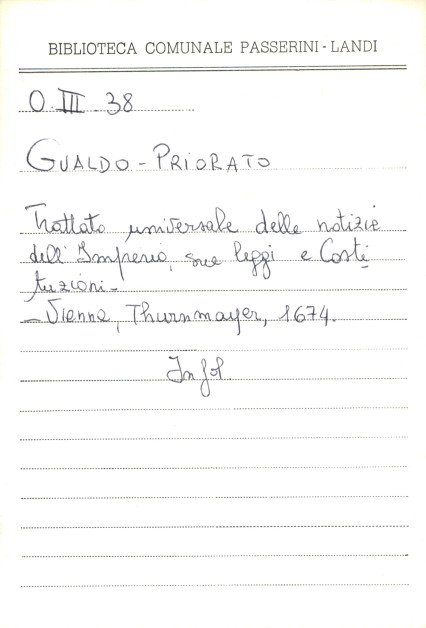 BIBLIOTECA COMUNALE PASSERINI - LANDI
O. III. 38
GUALDO - PRIORATO
Trattato universale delle notizie
dell'Imperio, sue leggi e Costi
tuzioni -
- Vienna, Thurnmayer, 1674.
In fol.